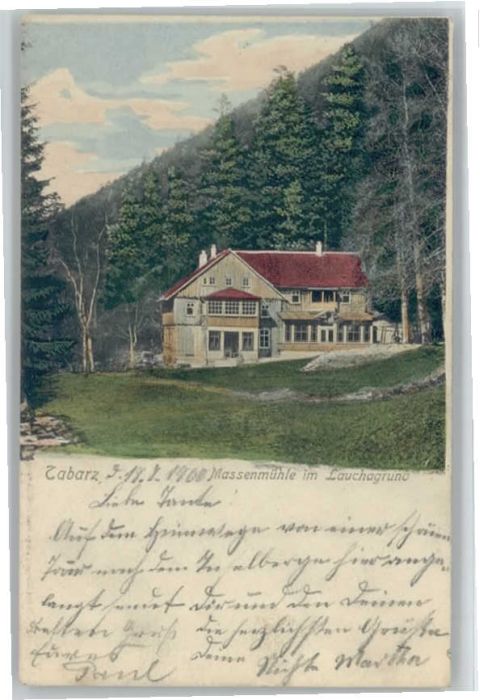 Tabarz, d. 18.8.1900 Massenmühle im Lauchagrund
Liebe Tante!
Auf dem Heimwege von einer schönen
Tour nach dem Inselberge hier ange-
langt sendet Dir und den Deinen
Besten Gruß die herzlichsten Grüße
Paul Deine Nichte Martha